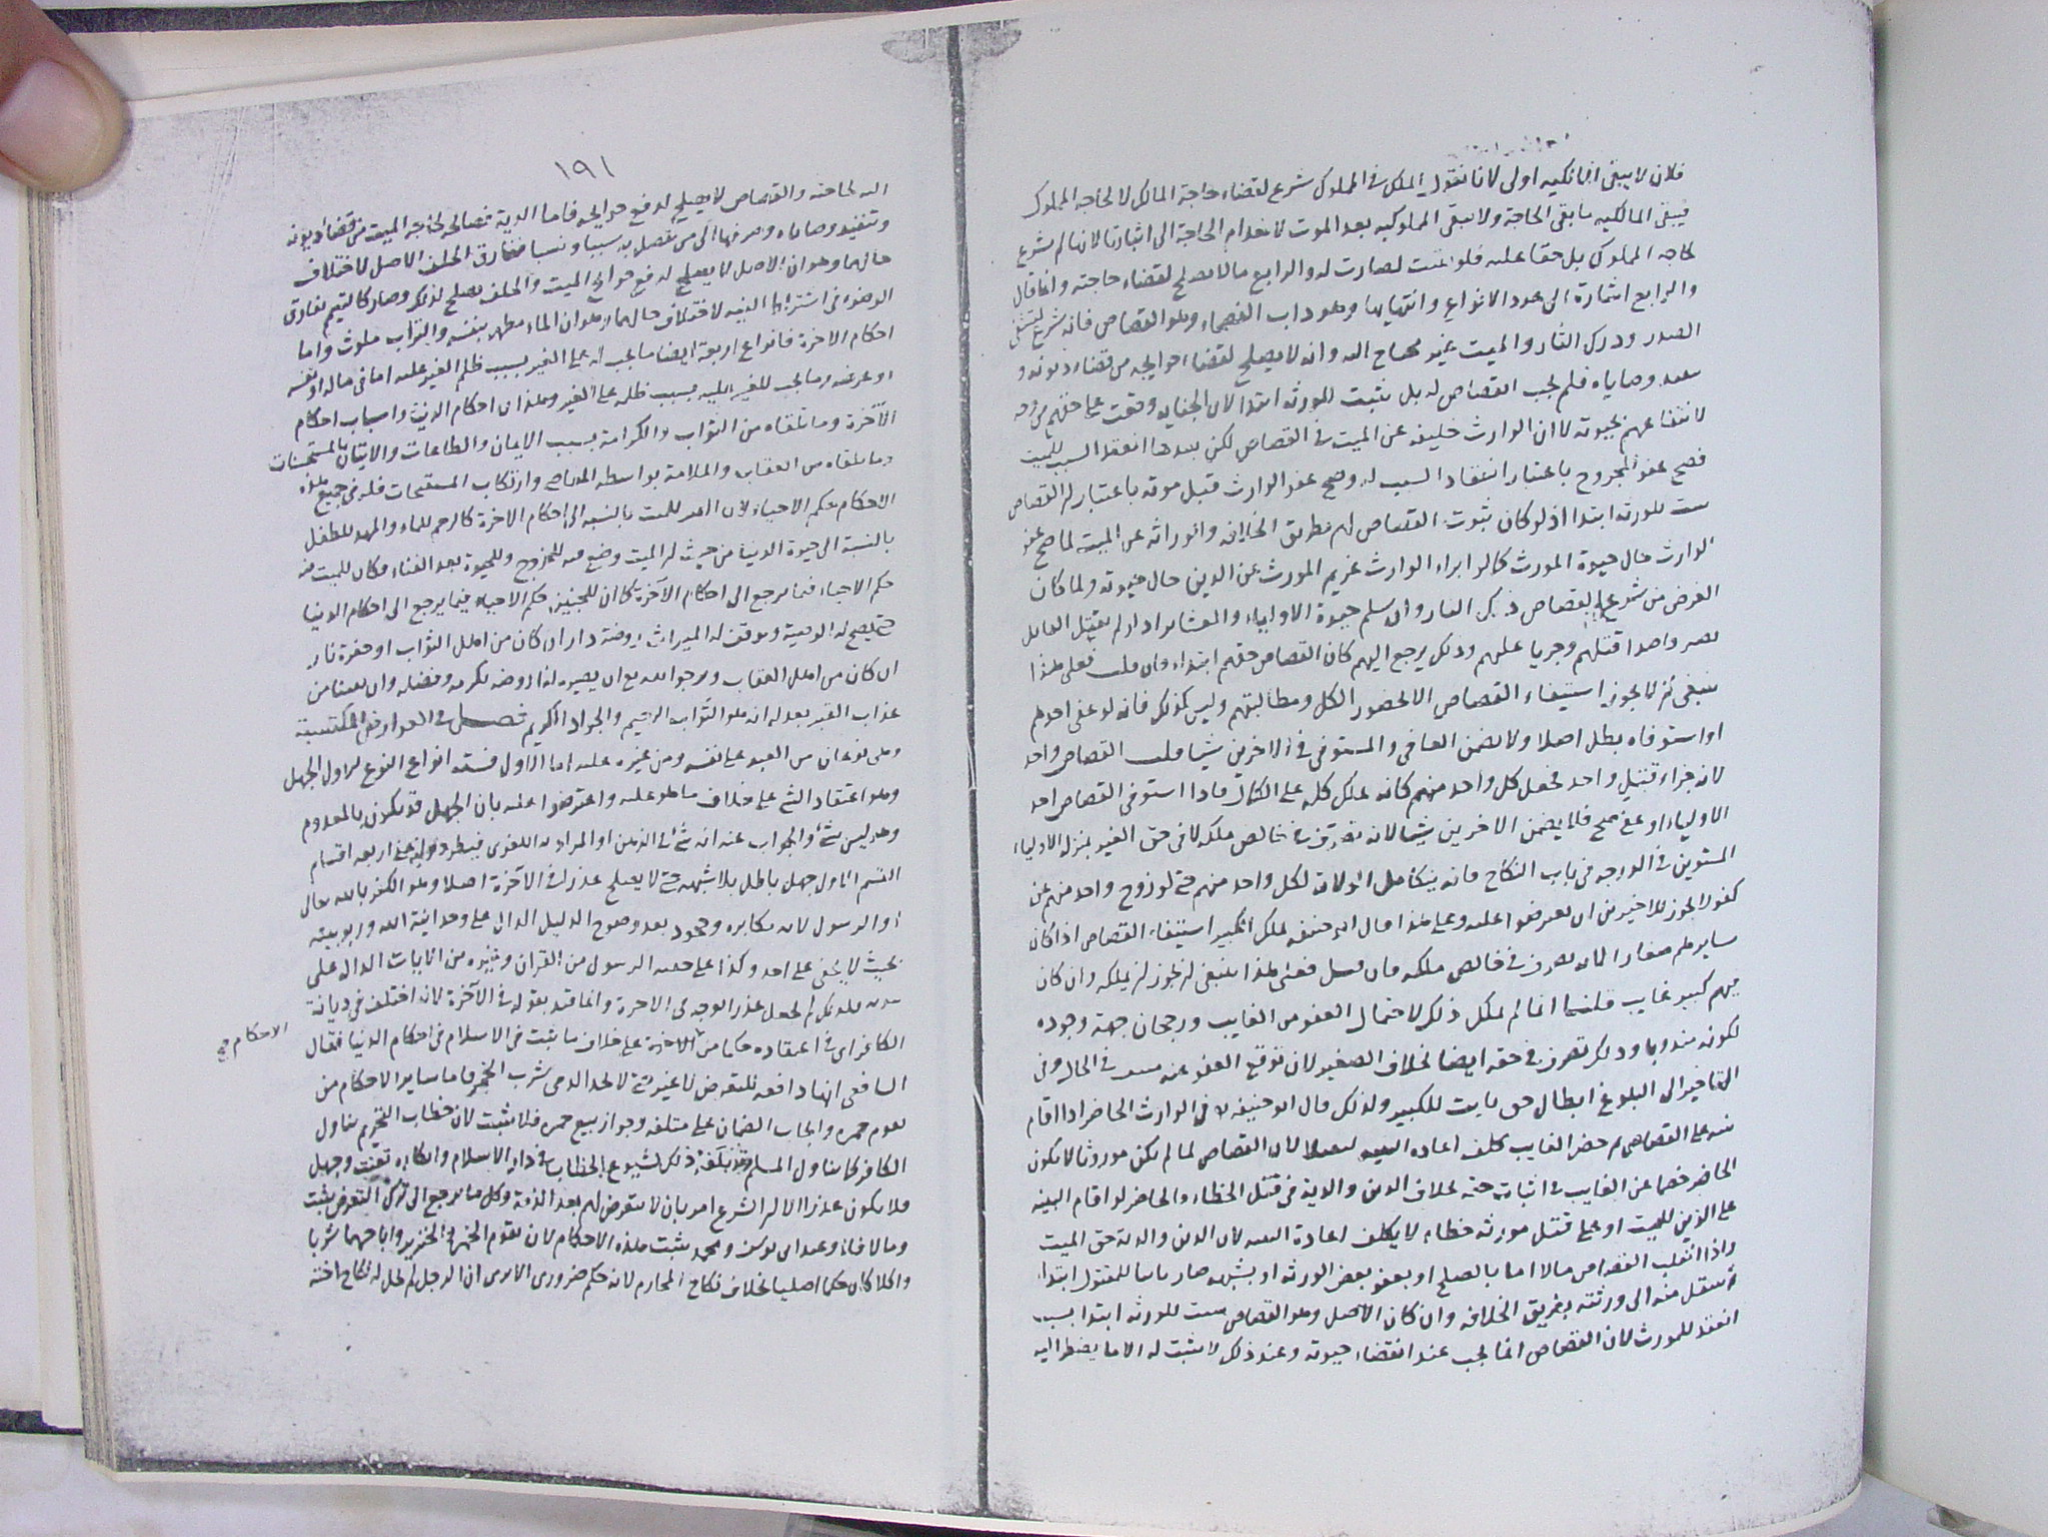 فلان لا يبقى المالكيه اولى لانا نقول الملك في المملوك شرع لقضاء حاجة المالك لا لحاجة المملوك
فيبقى المالكيه ما بقى الحاجة ولا تبقى المملوكيه بعد الموت لانعدام الحاجة الى اثباتها لانها لم تشرع
لحاجه المملوك بل حقا عليه فلو بقيت لصارت له والرابع ما لا يصلح لقضاء حاجته وانما قال
والرابع اشارة الى عدد الانواع وانتهايها وهو داب الفصحاء وهو القصاص فانه شرع لتشفى
الصدر ودرك الثار والميت غير محتاج اليه وانه لا يصلح لقضاء حوايجه من قضاء ديونه و
تنفيذ وصاياه فلم يجب القصاص له بل يثبت للورثه ابتدا لان الجنايه وقعت على حقهم من وجه
لانتفاعهم بحيوته لا ان الوارث خليفه عن الميت في القصاص لكن بعدما انعقد السبب للميت
فصح عفو المجروح باعتبار انعقاد السبب له وصح عفو الوارث قبل موته باعتبار ان القصاص
يثبت للورثه ابتدا اذ لو كان ثبوت القصاص لهم بطريق الخلافه والوراثه عن الميت لما صح عفو
الوارث حال حيوة المورث كما لو ابراء الوارث غريم المورث عن الدين حال حيوته ولما كان
الغرض من شرعية القصاص درك الثار وان يسلم حيوة الاولياء والعشاير اذ لو لم يقتل القاتل
لصر واحدا قتلهم وجريا عليهم وذلك يرجع اليهم كان القصاص حقهم ابتداء فان قلت فعلى هذا
ينبغى ان لا يجوز استيفاء القصاص الا بحضور الكل ومطالبتهم وليس كذلك فانه لو عفى احدهم
او استوفاه بطل اصلا ولا يضمن العافى والمستوفى فى الاخرين شيا قلت القصاص واحد
لانه جزاء قتل واحد فجعل كل واحد منهم كانه يملك كله على الكمال فاذا استوفى القصاص احد
الاولياء او عفى صح فلا يضمن الاخرين شيا لانه تصرف فى خالص ملكه لا فى حق الغير بمنزلة الاولياء
المستوين في الدرجه في باب النكاح فانه يتكامل الولاية لكل واحد منهم حتى لو زوج واحد منهم من
كفو لا يجوز للاخرين ان يعترضوا عليه وعلى هذا قال ابو حنيفه يملك الكبير استيفاء القصاص اذا كان
سايرهم صغارا لانه تصرف في خالص ملكه فان قيل فعلى هذا ينبغى ان يجوز ان يملكه وان كان
فيهم كبير غايب قلنا انما لم يملك ذلك لاحتمال العفو من الغايب ورجحان جهة وجوده
لكونه مندوبا وذلك تصرف في حقه ايضا بخلاف الصغير لان توقع العفو عنه في الحال وفى
التاخير الى البلوغ ابطال حق ثابت للكبير ولذلك قال ابو حنيفه في الوارث الحاضر اذا اقام
بينه على القصاص ثم حضر الغايب كلف اعاده البينه لان القصاص لما لم يكن موروثا لا يكون
الحاضر خصما عن الغايب في اثبات حقه بخلاف الدين والدية فى قتل الخطاء والحاضر لو اقام البينه
على الدين للميت او على قتل مورثه خطاء لا يكلف اعادة البينه لان الدين والدية حق الميت
واذا انقلب القصاص مالا اما بالصلح او بعفو بعض الورثه او بشبهه صار للمقتول ابتداء
ثم ينتقل منه الى ورثته بطريق الخلافه وان كان الاصل وهو القصاص يثبت للورثه ابتدا بسبب
انعقد للمورث لان القصاص انما يجب عند انقضاء حيوته وعند ذلك لا يثبت له الا ما يضطر اليه
١٩١
اليه لحاجته والقصاص لا يصلح لدفع حوايجه فاما الدية فصالحه لحاجه الميت من قضاء ديونه
وتنفيذ وصاياه وصرفها الى من يتصل به سببا ونسبا ففارق الخلف الاصل لاختلاف
حالهما وهو ان الاصل لا يصلح لدفع حوايج الميت والخلف يصلح لذلك وصار كالتيمم يفارق
الوضوء في اشتراط النيه لاختلاف حالهما وهو ان الماء مطهر بنفسه والتراب ملوث واما
احكام الاخرة فانواع اربعة ايضا ما يجب له على الغير بسبب ظلم الغير عليه اما فى ماله او نفسه
او عرضه وما يجب للغير عليه بسبب ظلمه على الغير وهذان احكام الدنيا واسباب احكام
الآخرة وما يلقاه من الثواب والكرامة بسبب الايمان والطاعات والاتيان بالمستحسنات
وما يلقاه من العقاب والملامة بواسطه المعاصي وارتكاب المستقبحات فله فى جميع هذه
الاحكام حكم الاحياء لان القبر للميت بالنسبه الى احكام الاخرة كالرحم للماء والمهد للطفل
بالنسبة الى حيوة الدنيا من حيث ان الميت وضع فيه للخروج وللحيوة بعد الفناء فكان للميت فيه
حكم الاحياء فيما يرجع الى احكام الآخرة كما ان للجنين حكم الاحياء فيما يرجع الى احكام الدنيا
حتى يصح له الوصية ويوقف له الميراث روضة دار ان كان من اهل الثواب او حفرة نار
ان كان من اهل العقاب ونرجوا الله تع ان يصيره لنا روضه بكرمه وفضله وان يعيذنا من
عذاب القبر بعدله انه هو التواب الرحيم والجواد الكريم فصل في العوارض المكتسبة
وهى نوعان من العبد على نفسه ومن غيره عليه اما الاول فسته انواع النوع الاول الجهل
وهو اعتقاد الشئ على خلاف ما هو عليه واعترضوا عليه بان الجهل قد يكون بالمعدوم
وهو ليس شئ والجواب عنه انه شئ فى الذهن او المراد به اللغوى فيطرد وانه على اربعه اقسام
القسم الاول جهل باطل بلا شبهه حتى لا يصلح عذرا في الآخرة اصلا وهو الكفر بالله تعالى
او الرسول لانه مكابره وجحود بعد وضوح الدليل الدال على وحدانية الله وربوبيته
بحيث لا يخفى على احد وكذا على حقيه الرسول من القران وغيره من الايات الدالة على
فلذلك لم يجعل عذرا لوجه فى الاخرة وانما قيد بقوله في الآخرة لانه اختلف فى ديانة
الكافر اى في اعتقاده حكما من الاحكام على خلاف ما ثبت فى الاسلام فى احكام الدنيا فقال
الاحكام صح
الشافعى انها دافعه للتعرض لا غير حتى لا يحد الذمى بشرب الخمر فاما ساير الاحكام من
تقوم خمره وايجاب الضمان على متلفه وجواز بيع خمره فلا يثبت لان خطاب التحريم تناول
الكافر كما تناول المسلم وقد بلغه ذلك لشيوع الخطاب في دار الاسلام وانكاره تعنت وجهل
فلا يكون عذرا الا ان الشرع امر بان لا نتعرض لهم بعد الذمة وكل ما يرجع الى ترك التعرض يثبت
وما لا فلا وعند ابى يوسف ومحمد يثبت هذه الاحكام لان تقوم الخمر والخنزير واباحتهما شربا
واكلا كان حكما اصليا بخلاف نكاح المحارم لانه حكم ضرورى الا يرى ان الرجل لم يحل له نكاح اخته